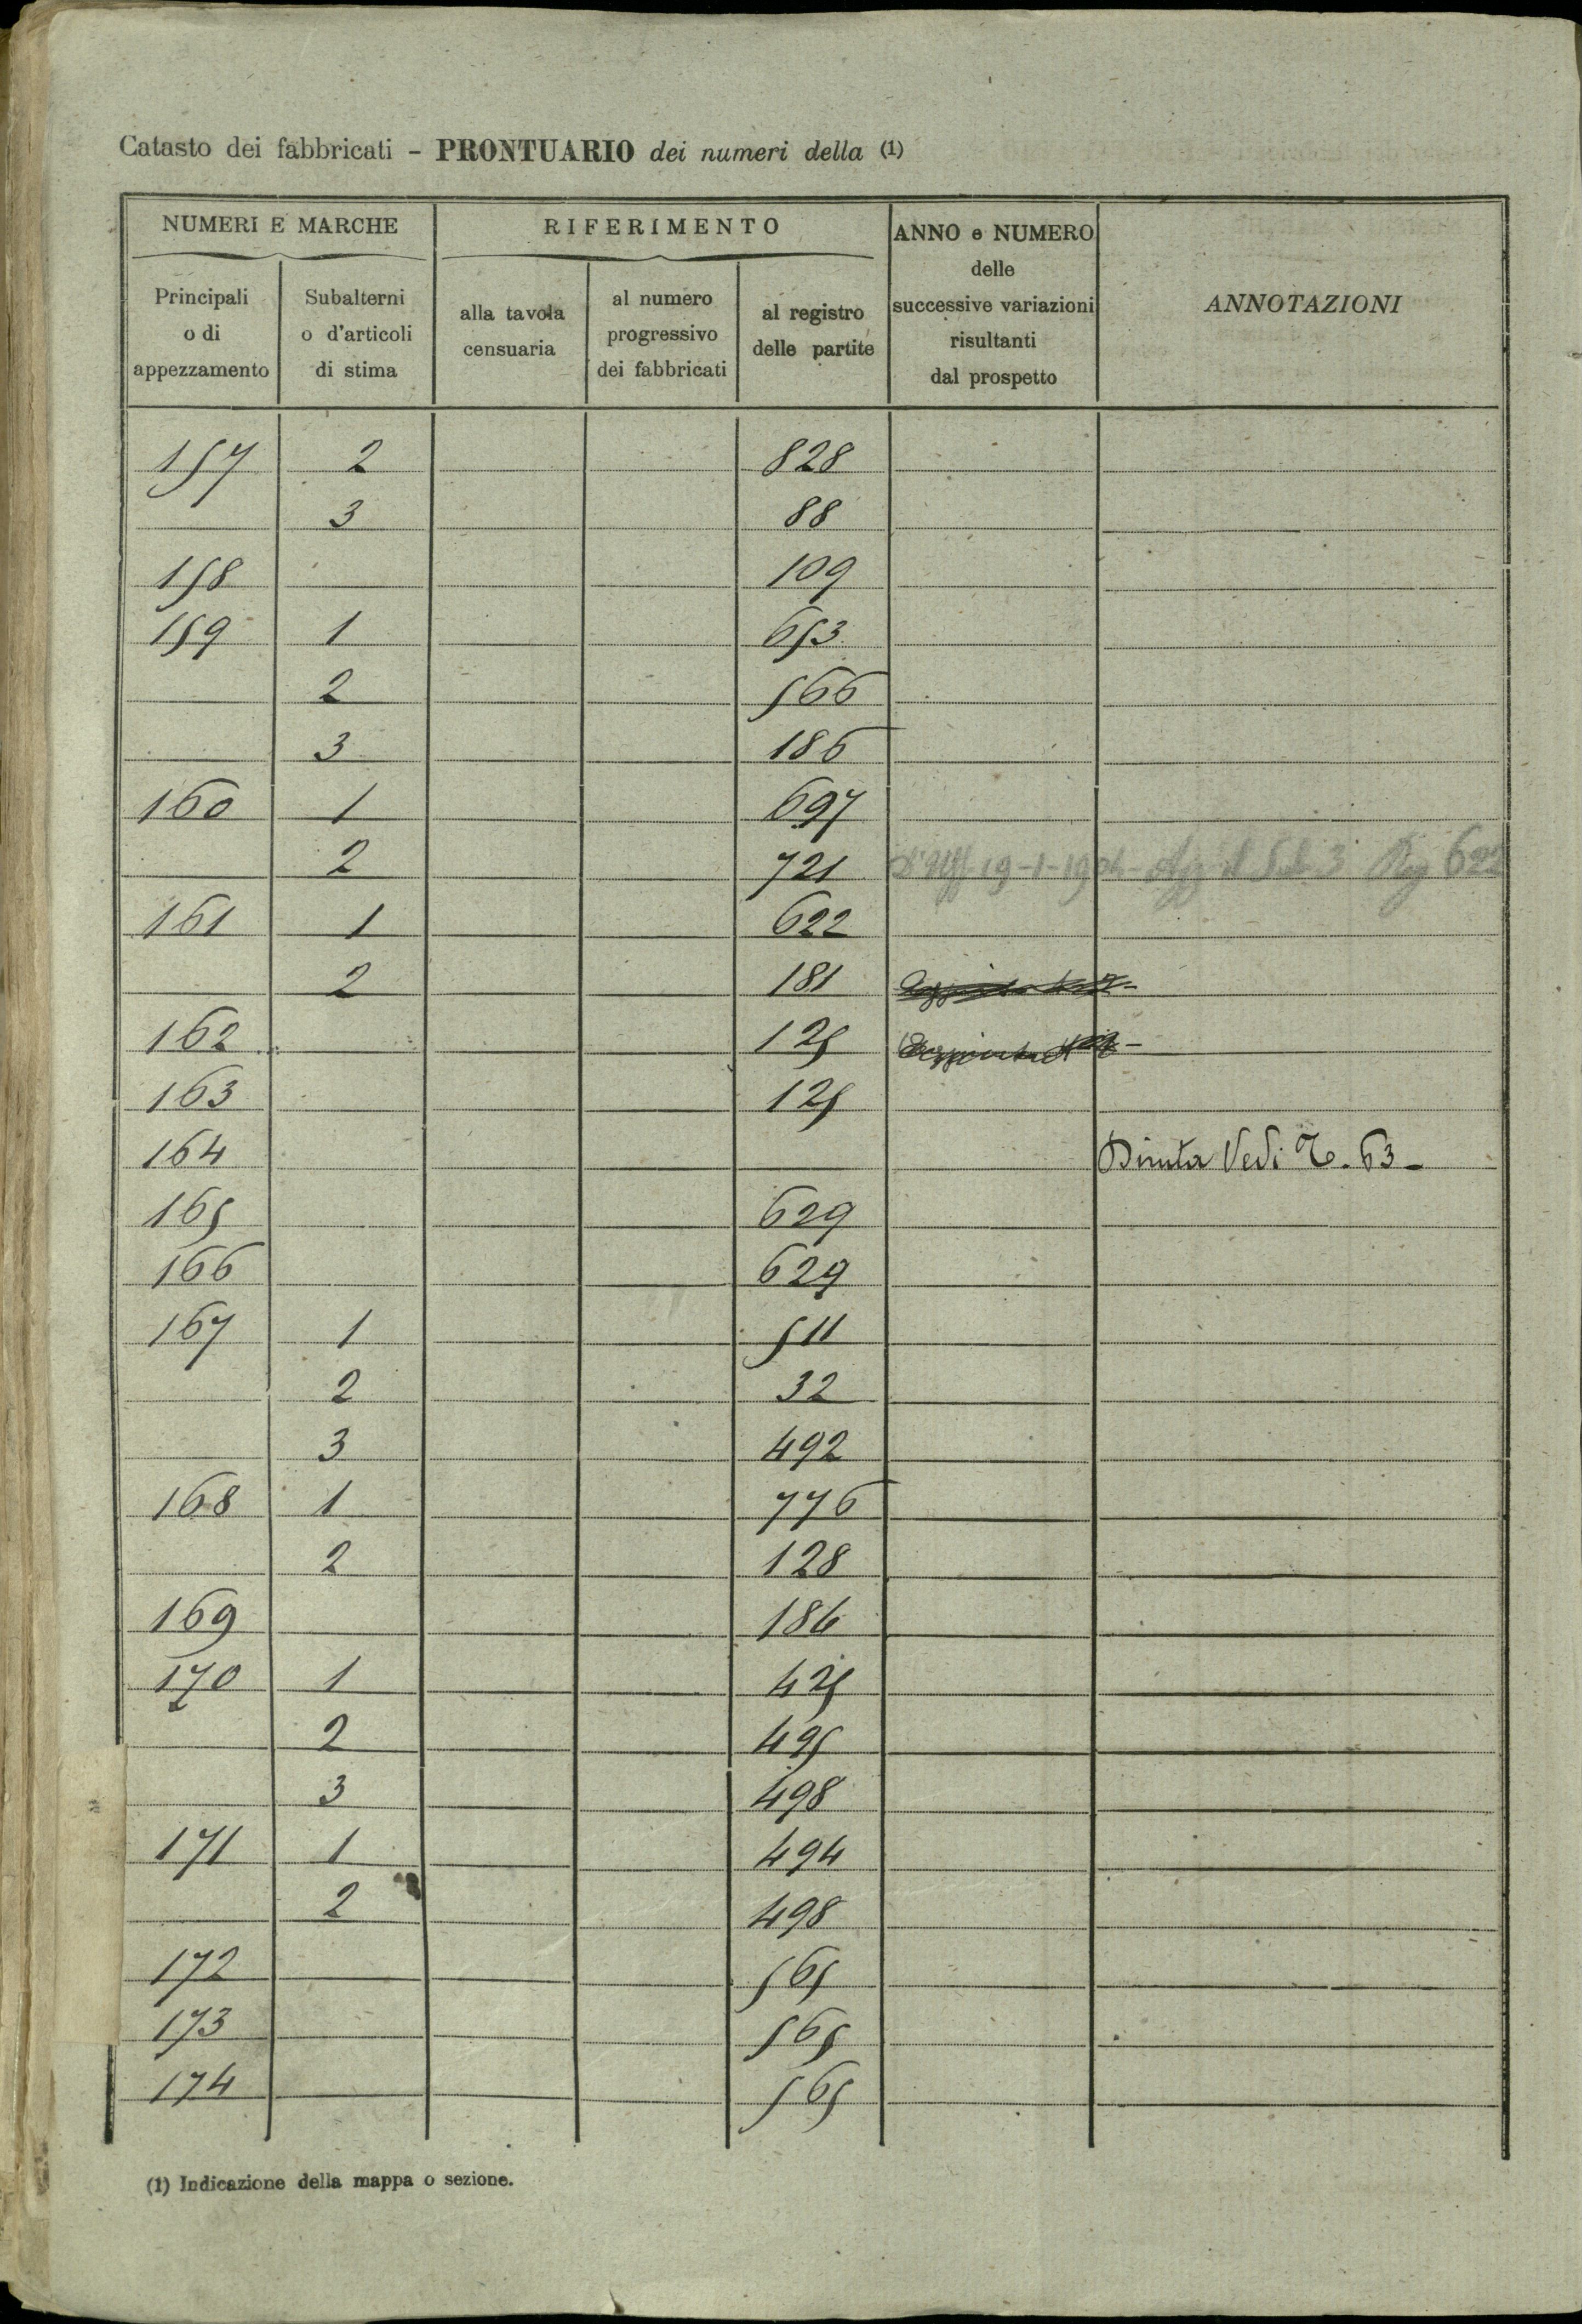 Catasto dei fabbricati - PRONTUARIO dei numeri della (1)
NUMERI E MARCHE RIFERIMENTO ANNO e NUMERO delle successive variazioni risultanti dal prospetto ANNOTAZIONI
Principali o di appezzamento Subalterni o d'articoli di stima alla tavola censuaria al numero progressivo dei fabbricati al registro delle partite
157 2 828
3 88
158 109
159 1 653
2 566
3 186
160 1 697
2 721 19-1-19 3 622
161 1 622
2 181
162 125
163 125
164 Diruta Vedi 63 -
165 629
166 629
167 1 511
2 32
3 492
168 1 776
2 128
169 186
170 1 425
2 495
3 498
171 1 494
2 498
172 565
173 565
174 565
(1) Indicazione della mappa o sezione.